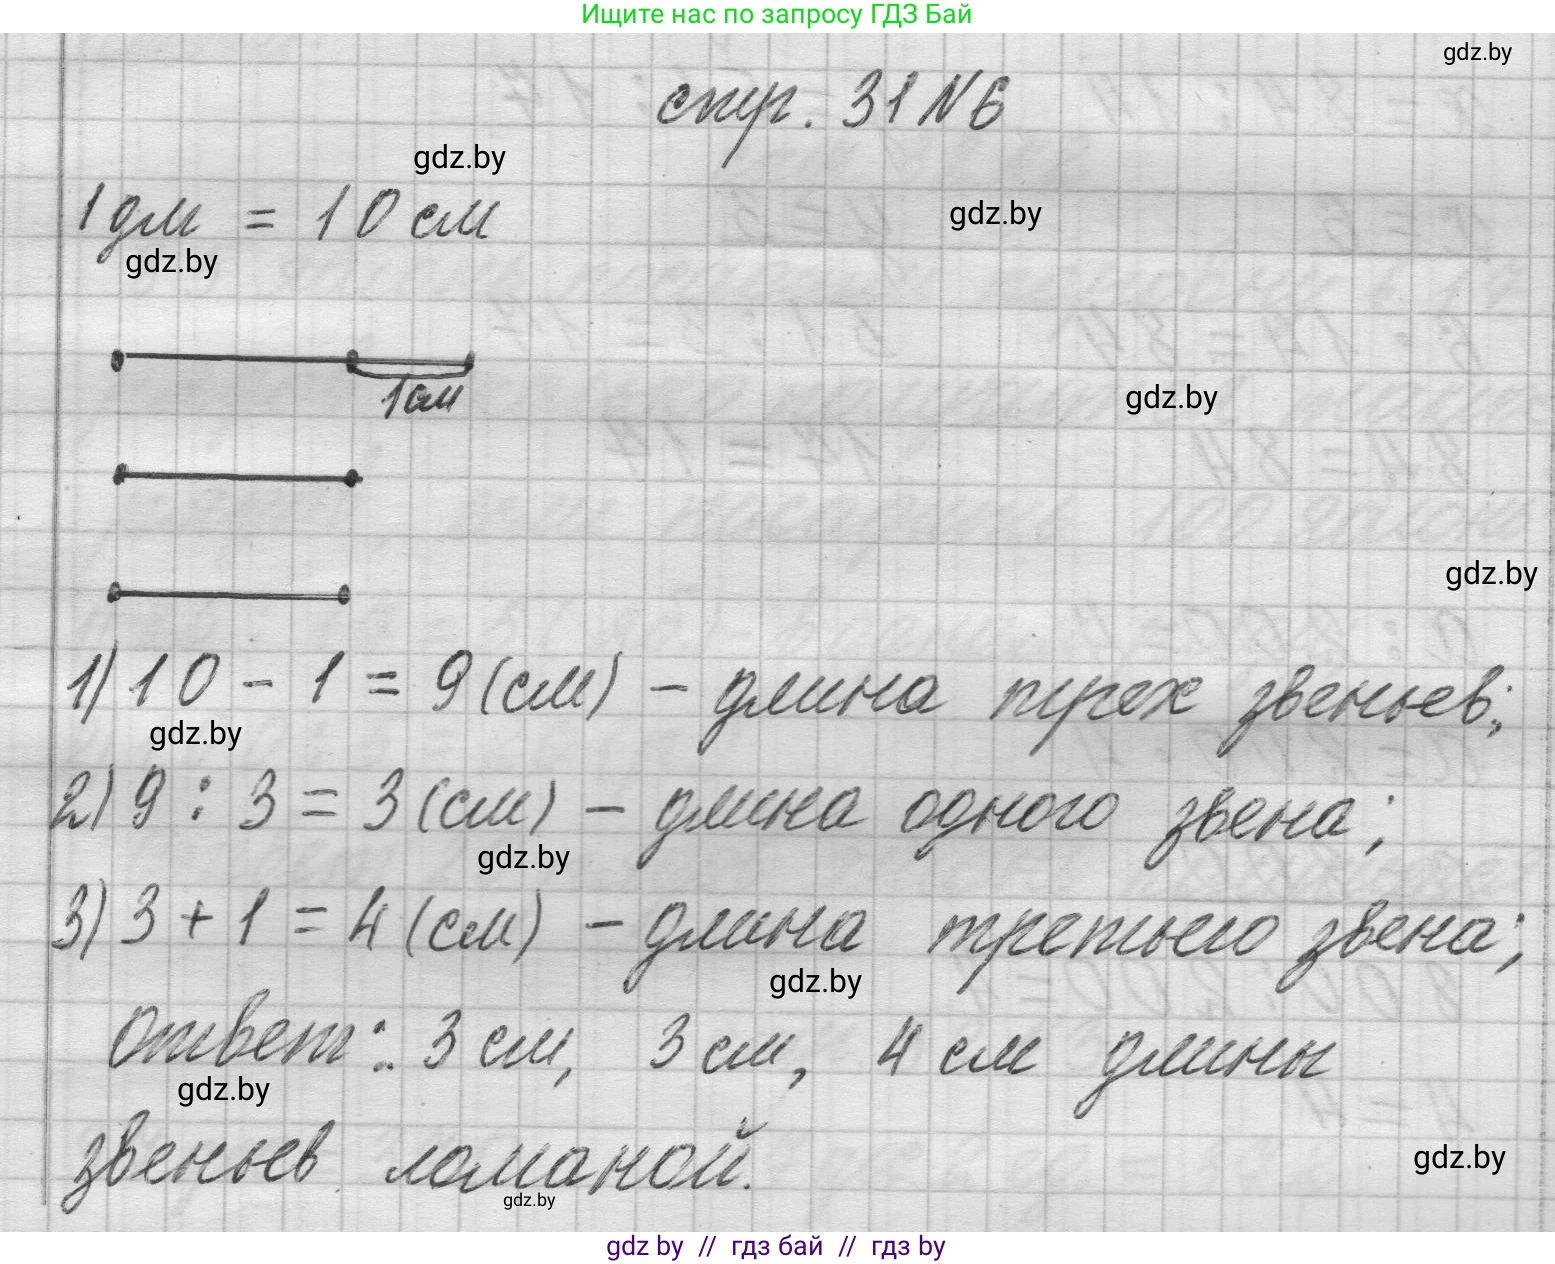 Ищите нас по запросу ГДЗ Бай
gdz.by
стр. 31 N 6
gdz.by
1 дм = 10 см
gdz.by
gdz.by
1 см
gdz.by
gdz.by
1) 10 - 1 = 9 (см) - длина трех звеньев;
gdz.by
2) 9 : 3 = 3 (см) - длина одного звена;
gdz.by
3) 3 + 1 = 4 (см) - длина третьего звена;
gdz.by
Ответ: 3 см, 3 см, 4 см длины
gdz.by
звеньев ломаной.
gdz.by
gdz.by
gdz by // гдз бай // гдз by